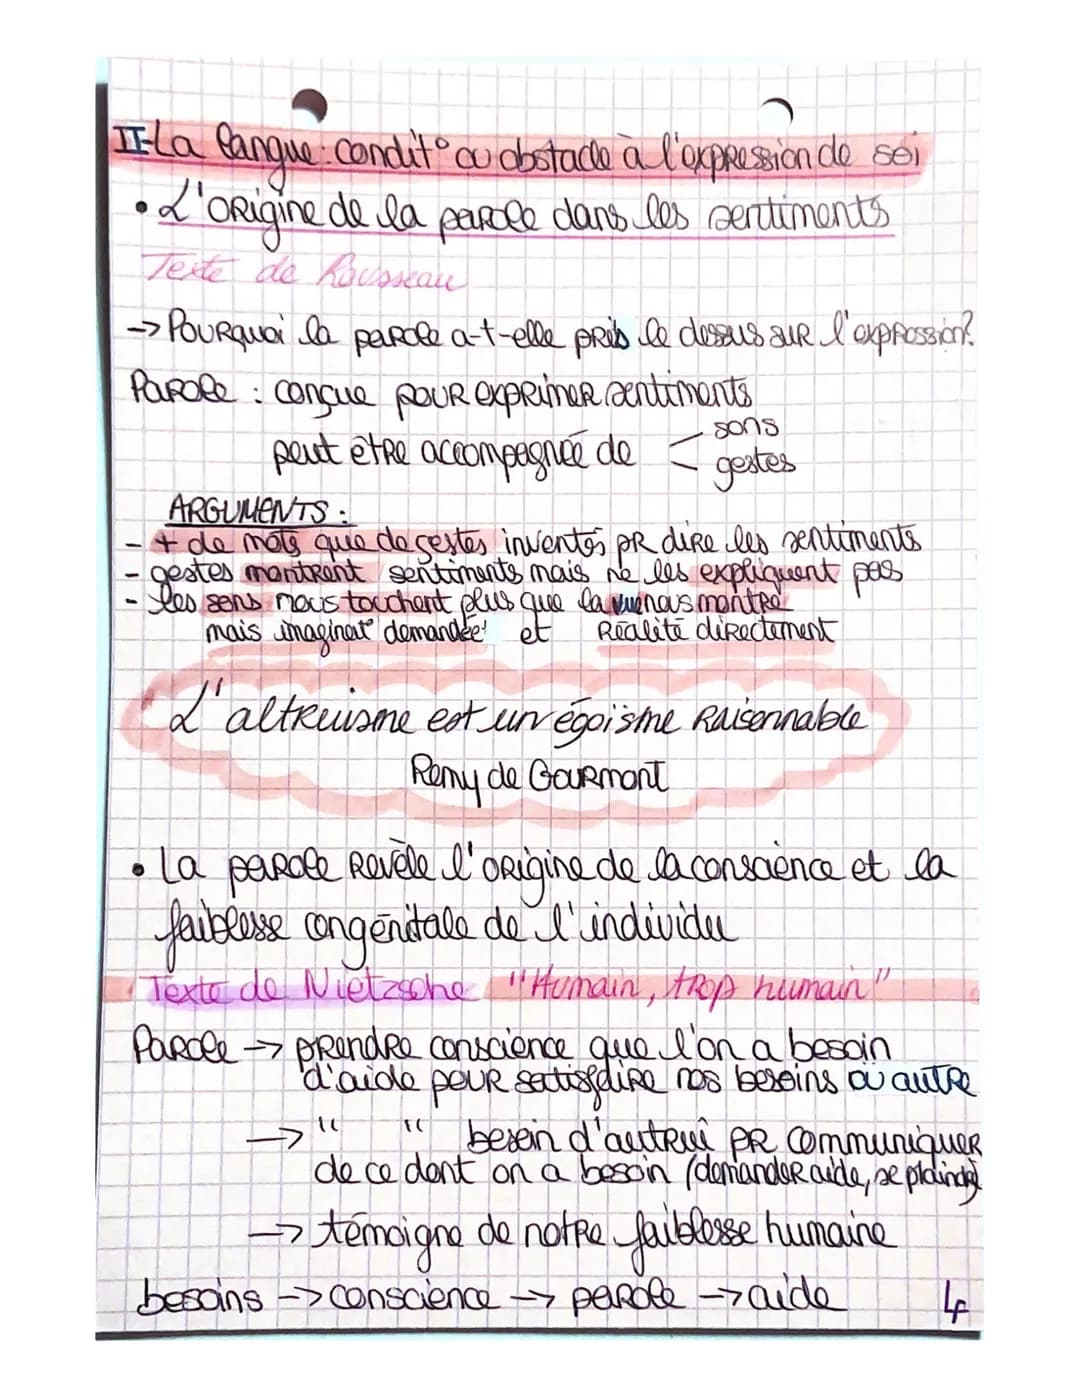 II-La langue : condit° ou obstacle à l'expression de soi
• L'origine de la parole dans les sentiments
Texte de Rousseau
-> Pourquoi la parole a-t-elle pris le dessus sur l'expression?
Parole : conçue pour exprimer sentiments
sons
peut être accompagnée de <
gestes
ARGUMENTS :
- + de mots que de gestes inventés pr dire les sentiments
- gestes montrent sentiments mais ne les expliquent pas
- les sens nous touchent plus que la vue nous montre
mais imaginat° demandée et Réalité directement
L'altruisme est un égoïsme raisonnable
Remy de Gourmont
• La parole révèle l'origine de la conscience et la
faiblesse congénitale de l'individu
Texte de Nietzsche "Humain, trop humain"
Parole -> prendre conscience que l'on a besoin
d'aide pour satisfaire nos besoins ou autre
-> " " besoin d'autrui pr communiquer
de ce dont on a besoin (demander aide, se plaindre)
-> témoigne de notre faiblesse humaine
besoins -> conscience -> parole -> aide
4